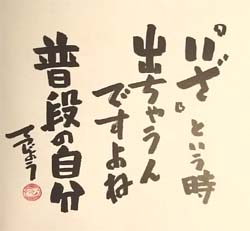 『いざ』という時
出ちゃうん
ですよね
普段の自分